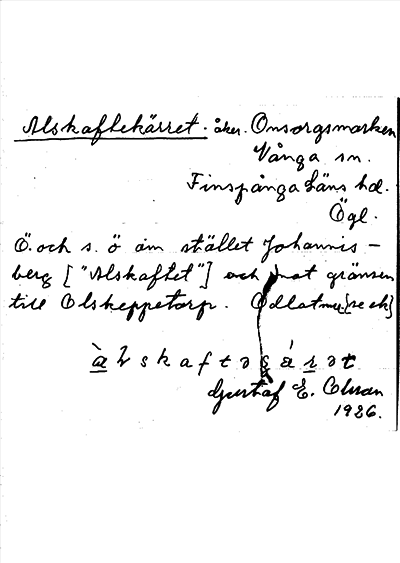 Alskaftekärret. åker. Onsorgsmarken
Vånga sn.
Finspånga Läns hd.
Ögl.
Ö. och s. ö om stället Johannis-
berg ["Alskaftet"] och mot gränsen
till Olskeppetorp. Odlat
àlskaftəsá̱rət
Gustaf E. Olsson
1926.